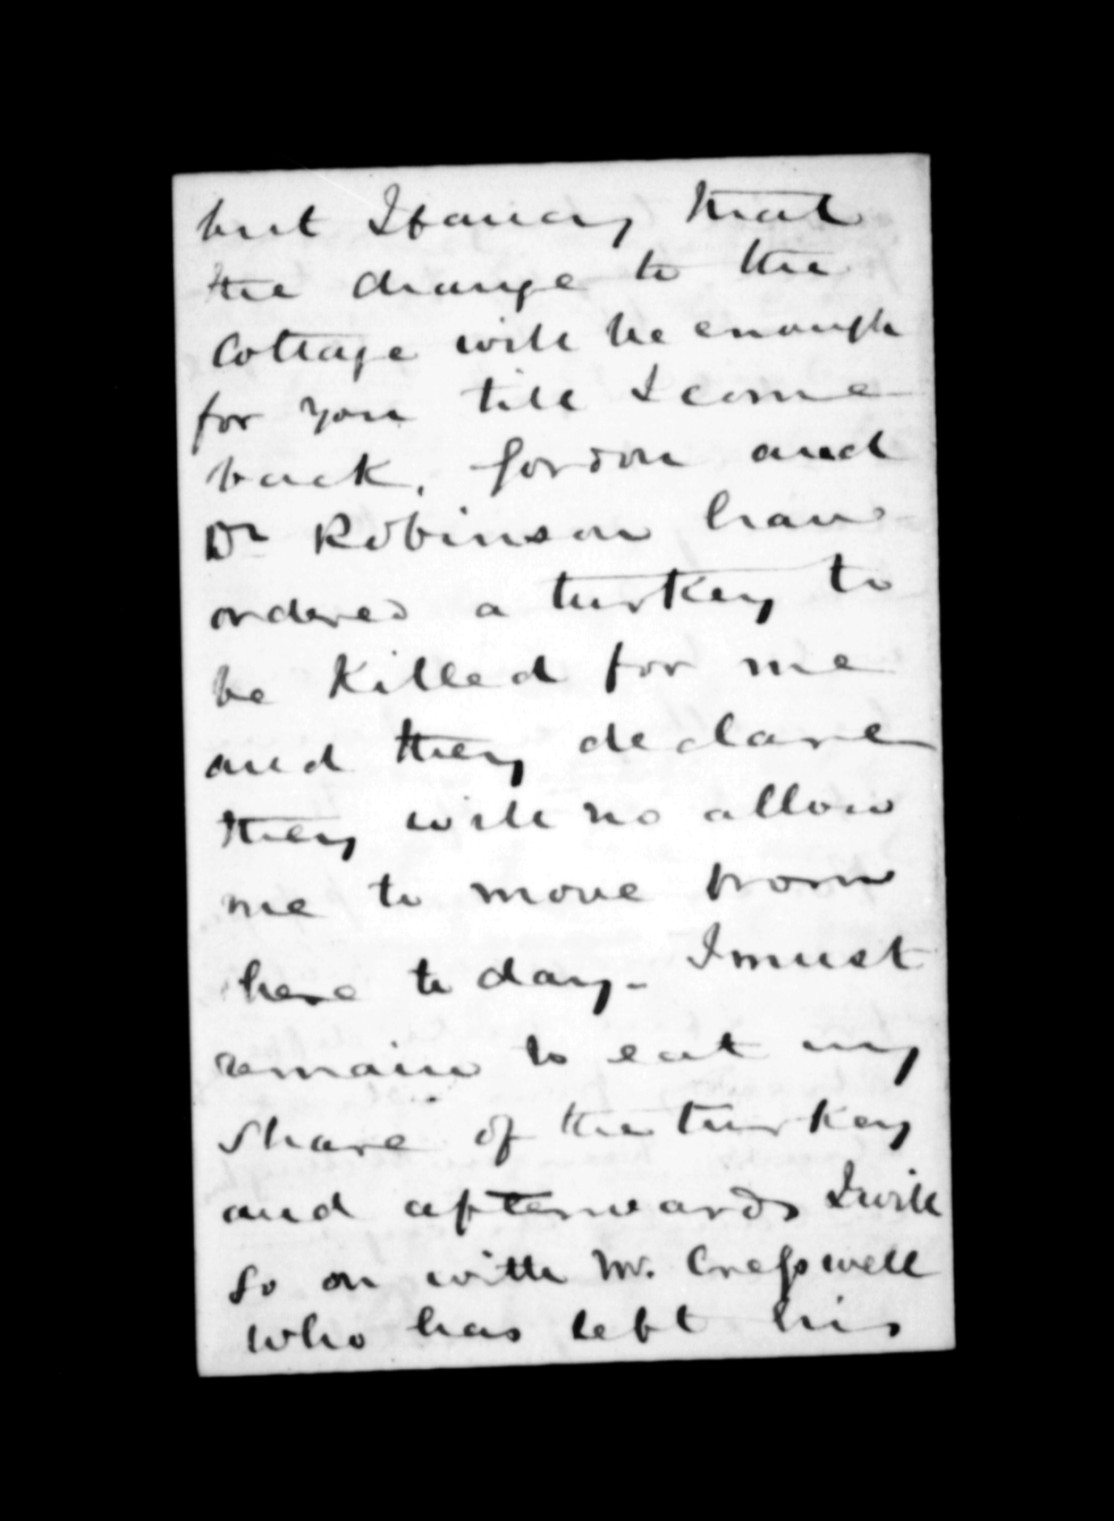 but I fancy that
the change to the
Cottage will be enough
for you till I come
back. Gordon and
Dr Robinson have
ordered a turkey to
be killed for me
and they declare
they will no allow
me to move from
here to day - I must
remain to eat my
share of the turkey
and afterwards I will
go on with Mr. Cresswell
who has left his